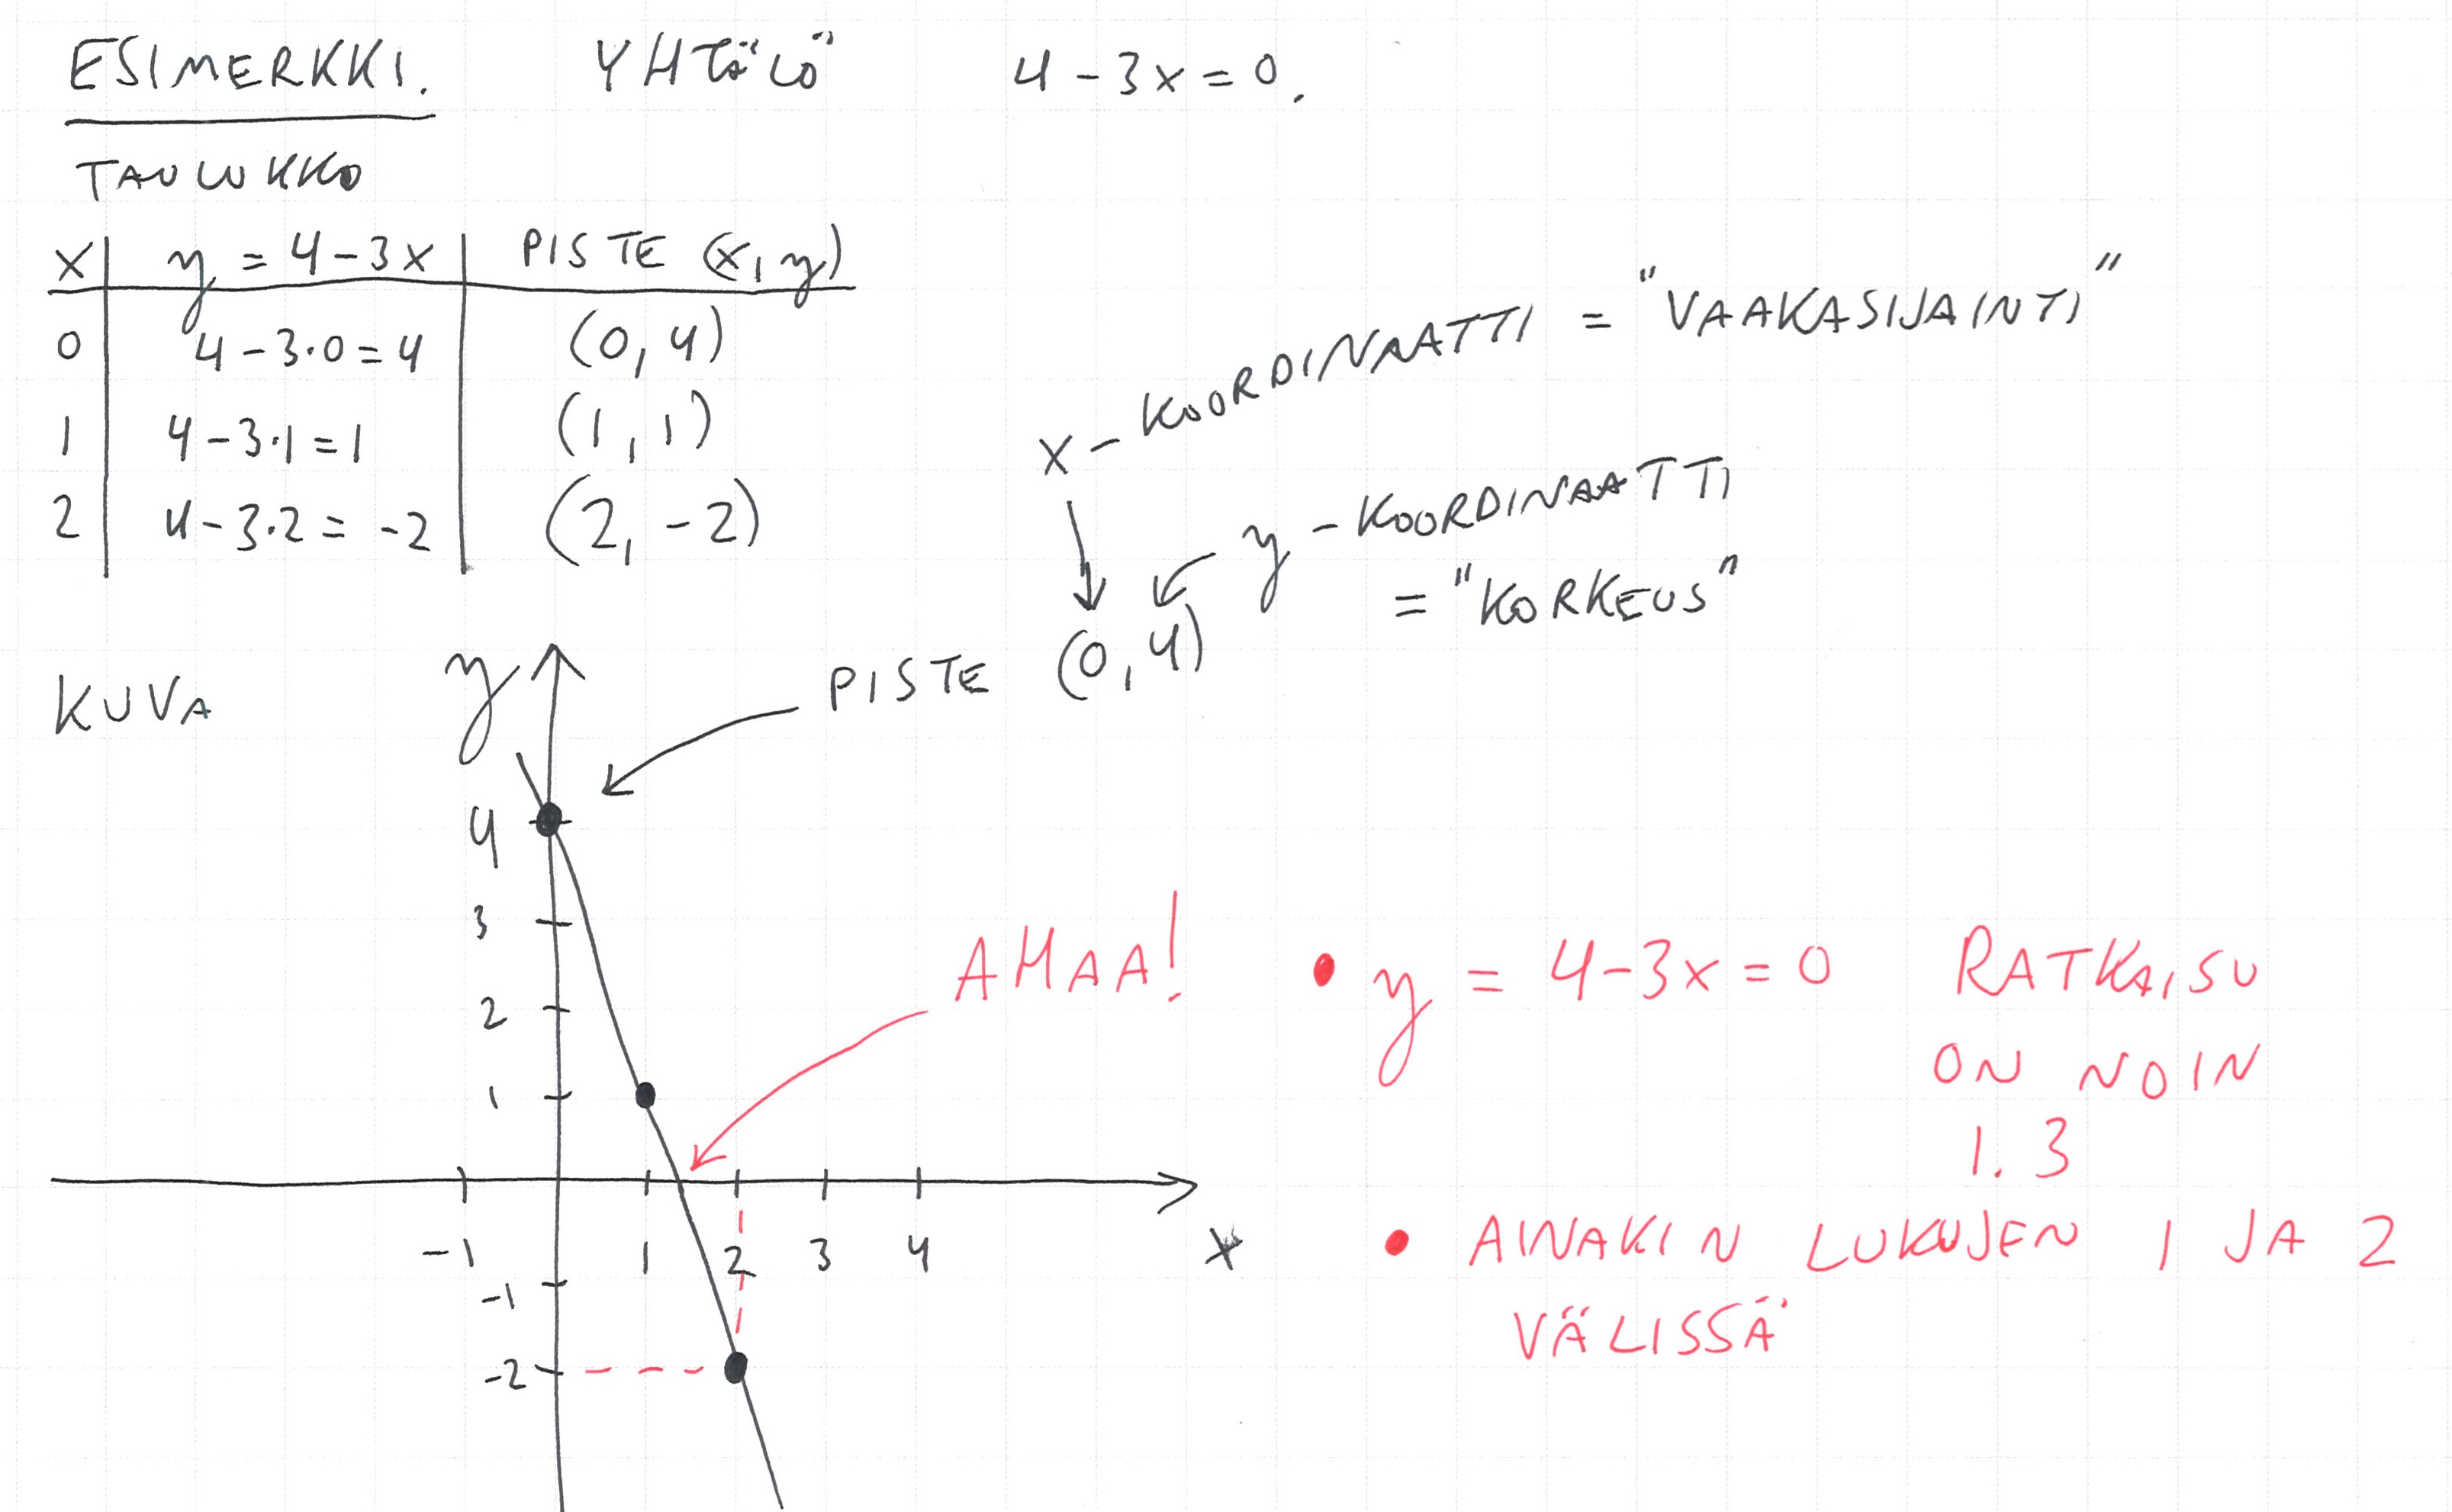 ESIMERKKI. YHTÄLÖ 4-3x=0.
TAULUKKO
x y = 4-3x PISTE (x,y)
0 4-3·0=4 (0,4)
1 4-3·1=1 (1,1)
2 4-3·2= -2 (2,-2)
x-KOORDINAATTI = "VAAKASIJAINTI"
y-KOORDINAATTI
= "KORKEUS"
PISTE (0,4)
KUVA
y
4
3
2
1
-1 1 2 3 4 x
-1
-2
AHAA!
• y = 4-3x = 0 RATKAISU
ON NOIN
1.3
• AINAKIN LUKUJEN 1 JA 2
VÄLISSÄ